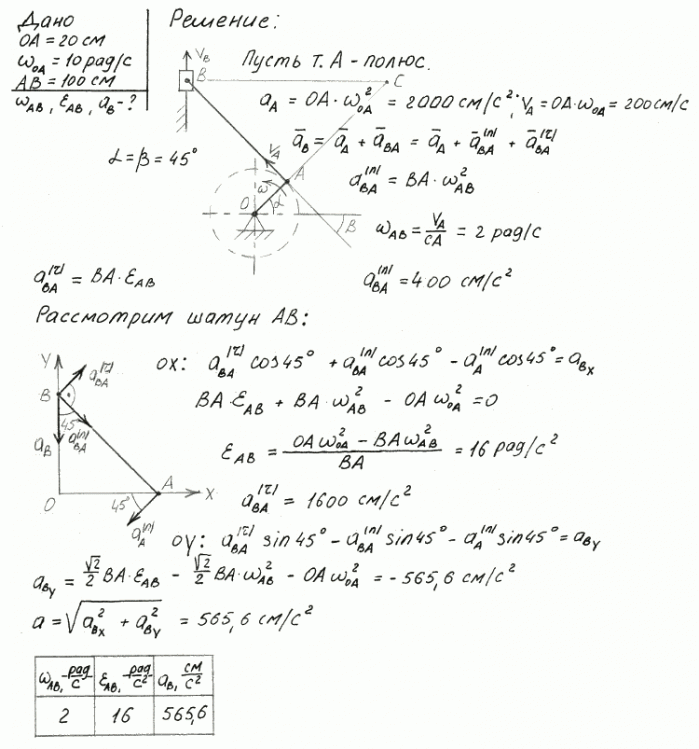 Дано
OA = 20 см
ω_OA = 10 рад/с
AB = 100 см
ω_AB, ε_AB, a_B - ?
Решение:
Пусть т. A - полюс.
a_A = OA·ω_OA^2 = 2000 см/с^2; V_A = OA·ω_OA = 200 см/с
ā_B = ā_A + ā_BA = ā_A + ā_BA^(n) + ā_BA^(τ)
α = β = 45°
a_BA^(n) = BA·ω_AB^2
ω_AB = V_A/CA = 2 рад/с
a_BA^(τ) = BA·ε_AB
a_BA^(n) = 400 см/с^2
V_B
B
C
V_A
A
ω
α
O
β
Рассмотрим шатун AB:
ox: a_BA^(τ) cos45° + a_BA^(n) cos45° - a_A^(n) cos45° = a_Bx
BA·ε_AB + BA·ω_AB^2 - OA ω_OA^2 = 0
ε_AB = (OA ω_OA^2 - BA ω_AB^2)/BA = 16 рад/с^2
a_BA^(τ) = 1600 см/с^2
Y
a_BA^(τ)
B
45°
a_BA^(n)
a_B
A
O
45°
X
a_A^(n)
oy: a_BA^(τ) sin45° - a_BA^(n) sin45° - a_A^(n) sin45° = a_By
a_By = √2/2 BA·ε_AB - √2/2 BA·ω_AB^2 - OA ω_OA^2 = -565,6 см/с^2
a = √(a_Bx^2 + a_By^2) = 565,6 см/с^2
ω_AB, рад/с ε_AB, рад/с^2 a_B, см/с^2
2 16 565,6